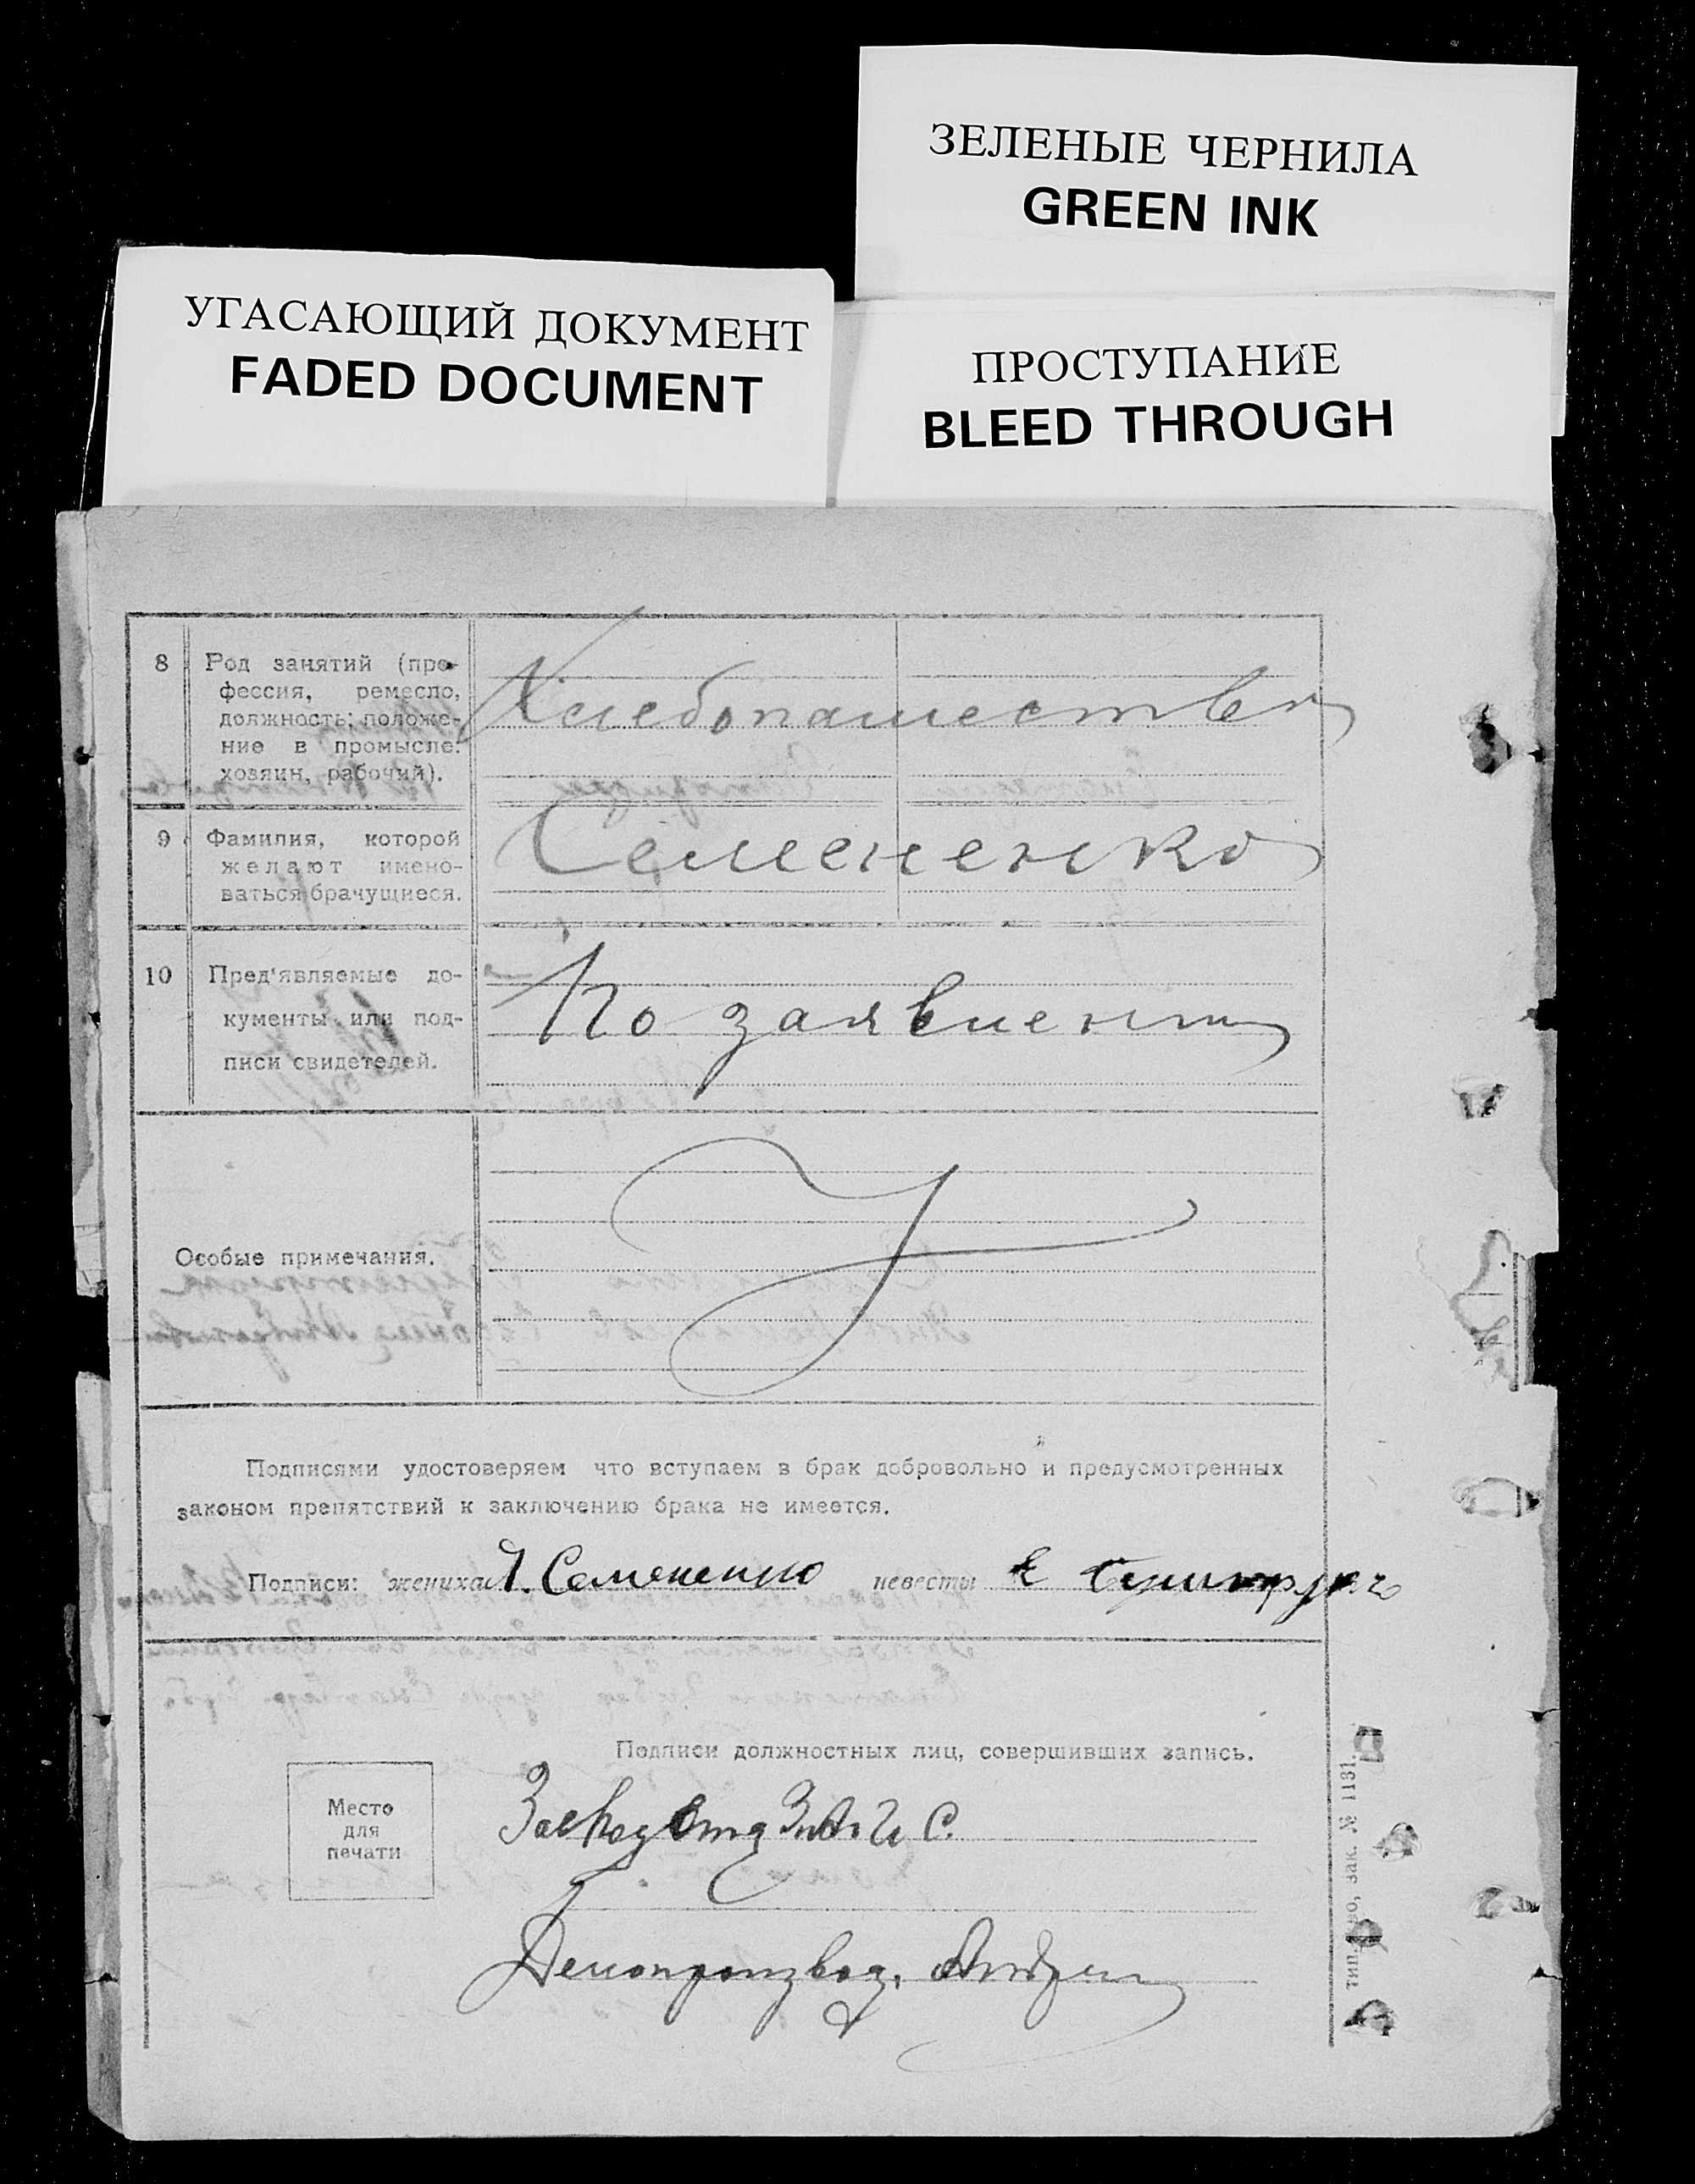 ЗЕЛЕНЫЕ ЧЕРНИЛА
GREEN INK
УГАСАЮЩИЙ ДОКУМЕНТ
FADED DOCUMENT
ПРОСТУПАНИЕ
BLEED THROUGH
8 Род занятий (про-
фессия, ремесло,
должность; положе-
ние в промысле:
хозяин, рабочий).
Хлебопашество
9 Фамилия, которой
желают имено-
ваться брачущиеся.
Семененко
10 Пред'являемые до-
кументы или под-
писи свидетелей.
По заявлению
Особые примечания.
Подписями удостоверяем что вступаем в брак добровольно и предусмотренных
законом препятствий к заключению брака не имеется.
Подписи: жениха Семененко невесты Е
Подписи должностных лиц, совершивших запись.
Место
для
печати
З. А. Г. С.
Делопроизвод.
тип. зак. № 1131.